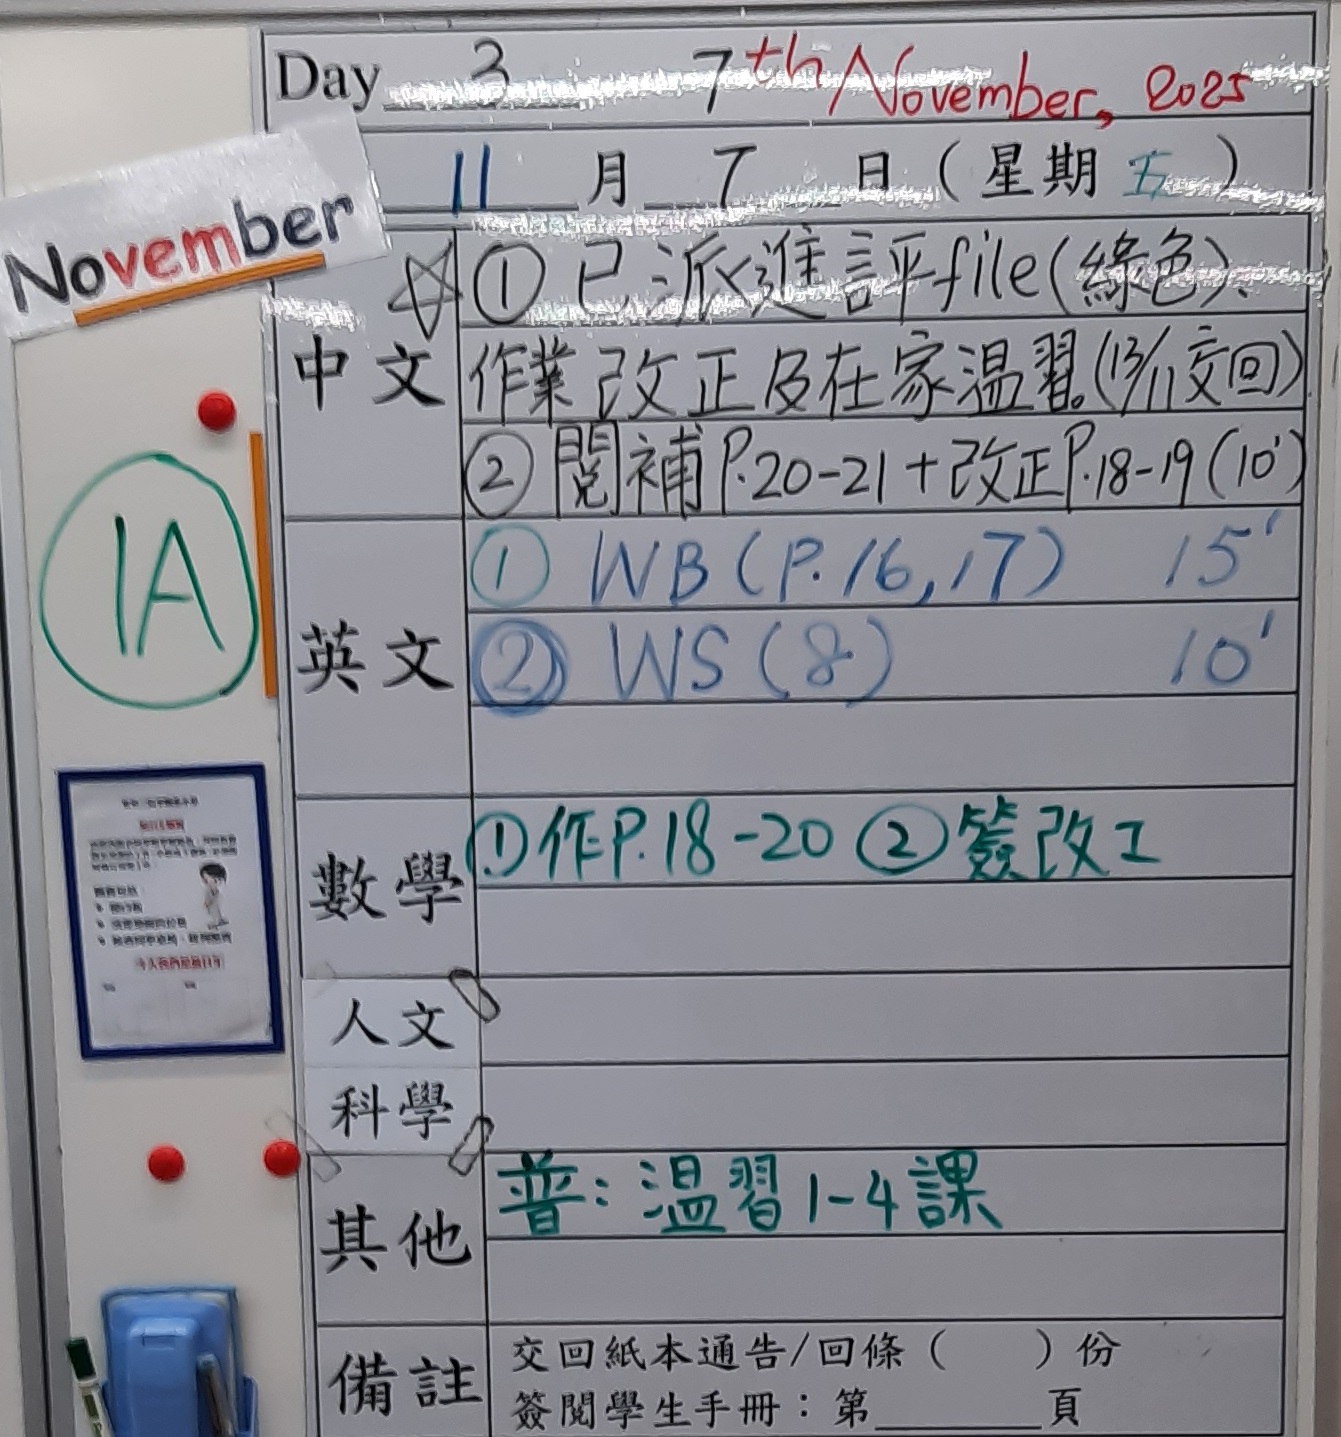 Day 3 7th November, 2025
11 月 7 日 ( 星期 五 )
November
中文
☆ ① 已派進評file(綠色)、
作業改正及在家溫習。(13/11交回)
② 閱補P.20-21+改正P.18-19(10')
1A
英文
① WB (P. 16, 17) 15'
② WS (8) 10'
數學
① 作P.18-20 ② 簽改工
人文
科學
其他
普:溫習1-4課
備註
交回紙本通告/回條 ( ) 份
簽閱學生手冊:第______頁